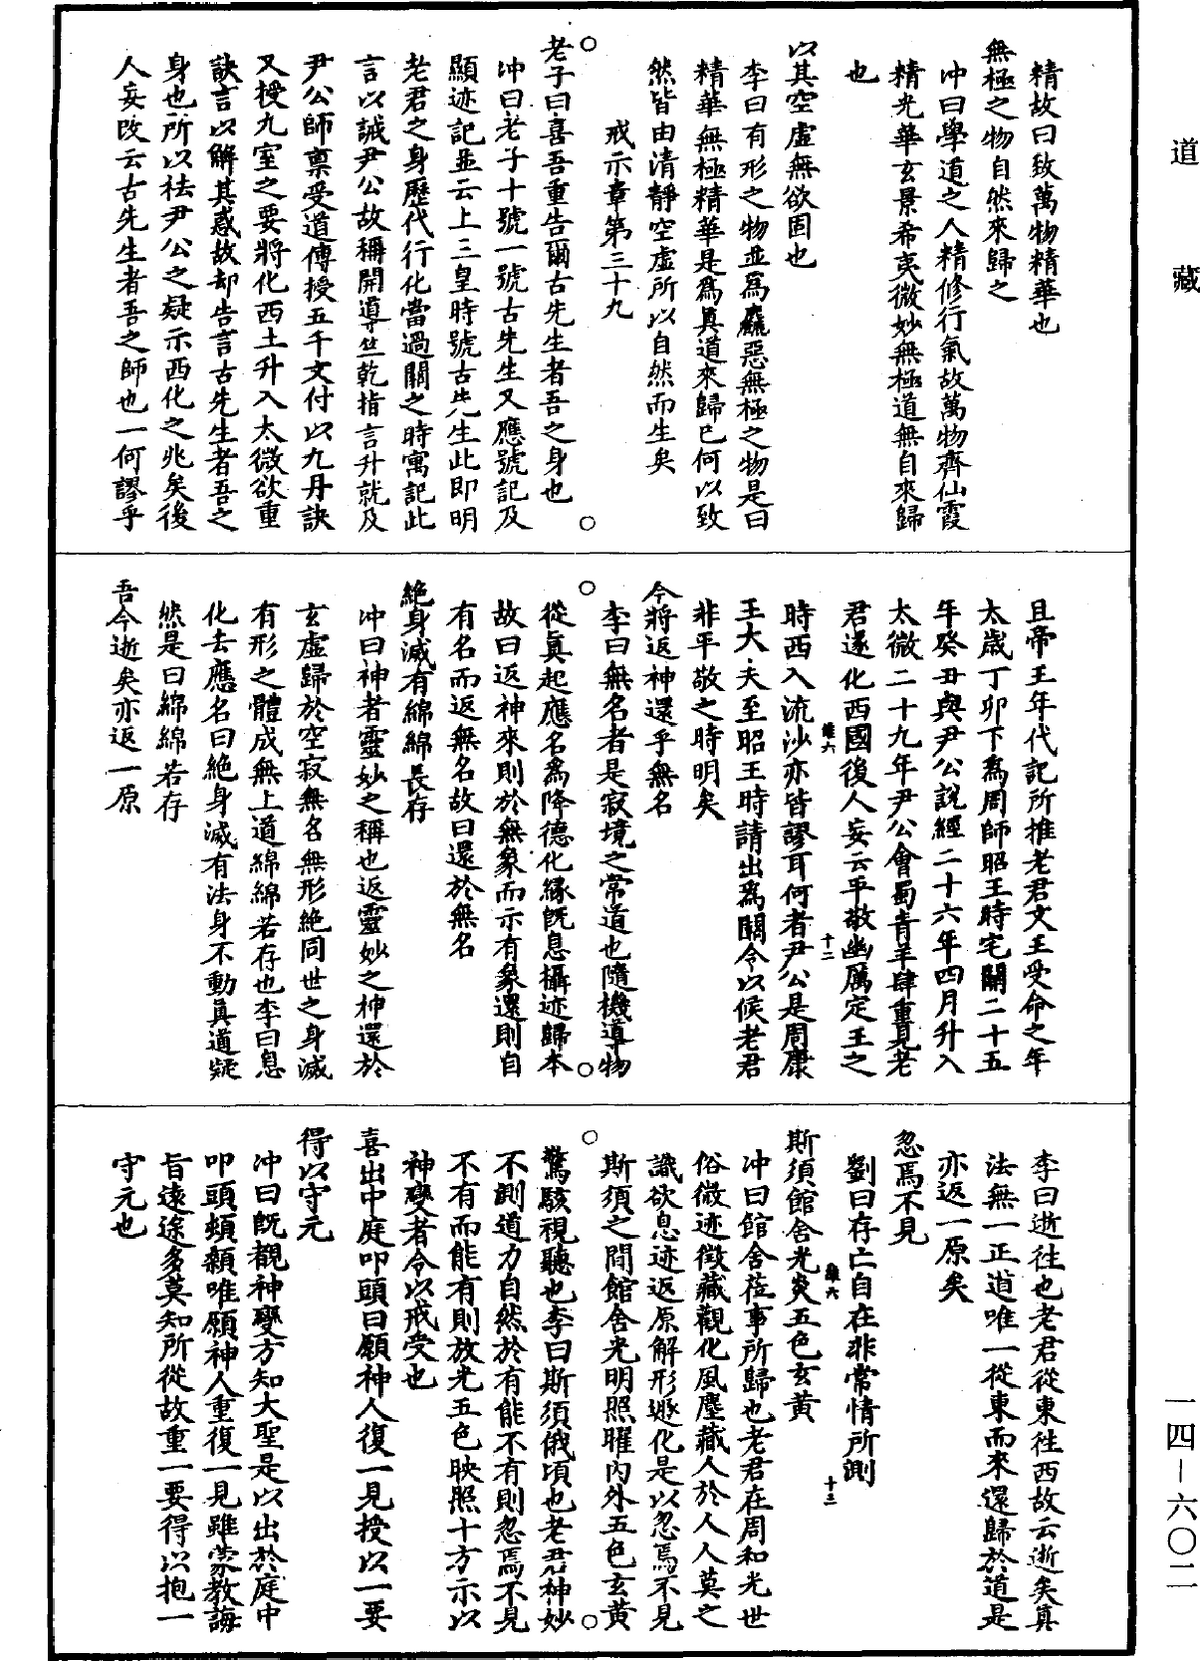 道藏
精故曰致萬物精華也
無極之物自然來歸之
沖曰學道之人精修行氣故萬物齊仙霞
精光華玄景希夷微妙無極道無自來歸
也
以其空虛無欲固也
李曰有形之物並爲麤惡無極之物是曰
精華無極精華是爲眞道來歸已何以致
然皆由清靜空虛所以自然而生矣
戒示章第三十九
老子曰喜吾重告爾古先生者吾之身也
沖曰老子十號一號古先生又應號記及
顯迹記並云上三皇時號古先生此即明
老君之身歷代行化當過關之時寓記此
言以誡尹公故稱開導竺乾指言升就及
尹公師禀受道傳授五千文付以九丹訣
又授九室之要將化西土升入太微欲重
訣言以解其惑故却告言古先生者吾之
身也所以袪尹公之疑示西化之兆矣後
人妄改云古先生者吾之師也一何謬乎
且帝王年代記所推老君文王受命之年
太歲丁卯下爲周師昭王時宅關二十五
年癸丑與尹公說經二十六年四月升入
太微二十九年尹公會蜀青羊肆重見老
君遂化西國後人妄云平敬幽厲定王之
維六
十二
時西入流沙亦皆謬耳何者尹公是周康
王大夫至昭王時請出爲關令以候老君
非平敬之時明矣
今將返神還乎無名
李曰無名者是寂境之常道也隨機導物
從眞起應名爲降德化緣旣息攝迹歸本
故曰返神來則於無象而示有象還則自
有名而返無名故曰還於無名
絕身滅有綿綿長存
沖曰神者靈妙之稱也返靈妙之神還於
玄虛歸於空寂無名無形絕同世之身滅
有形之體成無上道綿綿若存也李曰息
化去應名曰絕身滅有法身不動眞道疑
然是曰綿綿若存
吾今逝矣亦返一原
李曰逝往也老君從東往西故云逝矣眞
法無一正道唯一從東而來還歸於道是
亦返一原矣
忽焉不見
劉曰存亡自在非常情所測
維六
十三
斯須館舍光炎五色玄黃
沖曰館舍莅事所歸也老君在周和光世
俗微迹徵藏觀化風塵藏人於人人莫之
識欲息迹返原解形遯化是以忽焉不見
斯須之間館舍光明照曜內外五色玄黃
驚駭視聽也李曰斯須俄頃也老君神妙
不測道力自然於有能不有則忽焉不見
不有而能有則放光五色映照十方示以
神變者令以戒受也
喜出中庭叩頭曰願神人復一見授以一要
得以守元
沖曰旣覩神變方知大聖是以出於庭中
叩頭頰顙唯願神人重復一見雖蒙教誨
旨遠途多莫知所從故重一要得以抱一
守元也
一四—六〇二